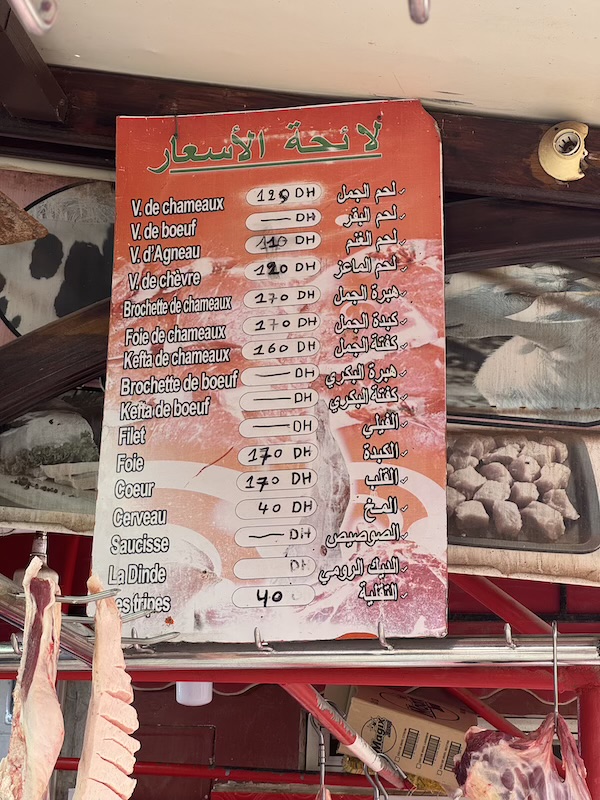 لائحة الأسعار
V. de chameaux 120 DH لحم الجمل
V. de boeuf — DH لحم البقر
V. d'Agneau 110 DH لحم الغنم
V. de chèvre 120 DH لحم الماعز
Brochette de chameaux 170 DH هبرة الجمل
Foie de chameaux 170 DH كبدة الجمل
Kefta de chameaux 160 DH كفتة الجمل
Brochette de boeuf — DH هبرة البكري
Kefta de boeuf — DH كفتة البكري
Filet — DH الفيلي
Foie 170 DH الكبدة
Coeur 170 DH القلب
Cerveau 40 DH المخ
Saucisse — DH الصوصيص
La Dinde DH الديك الرومي
es tripes 40 التقلية
Magix